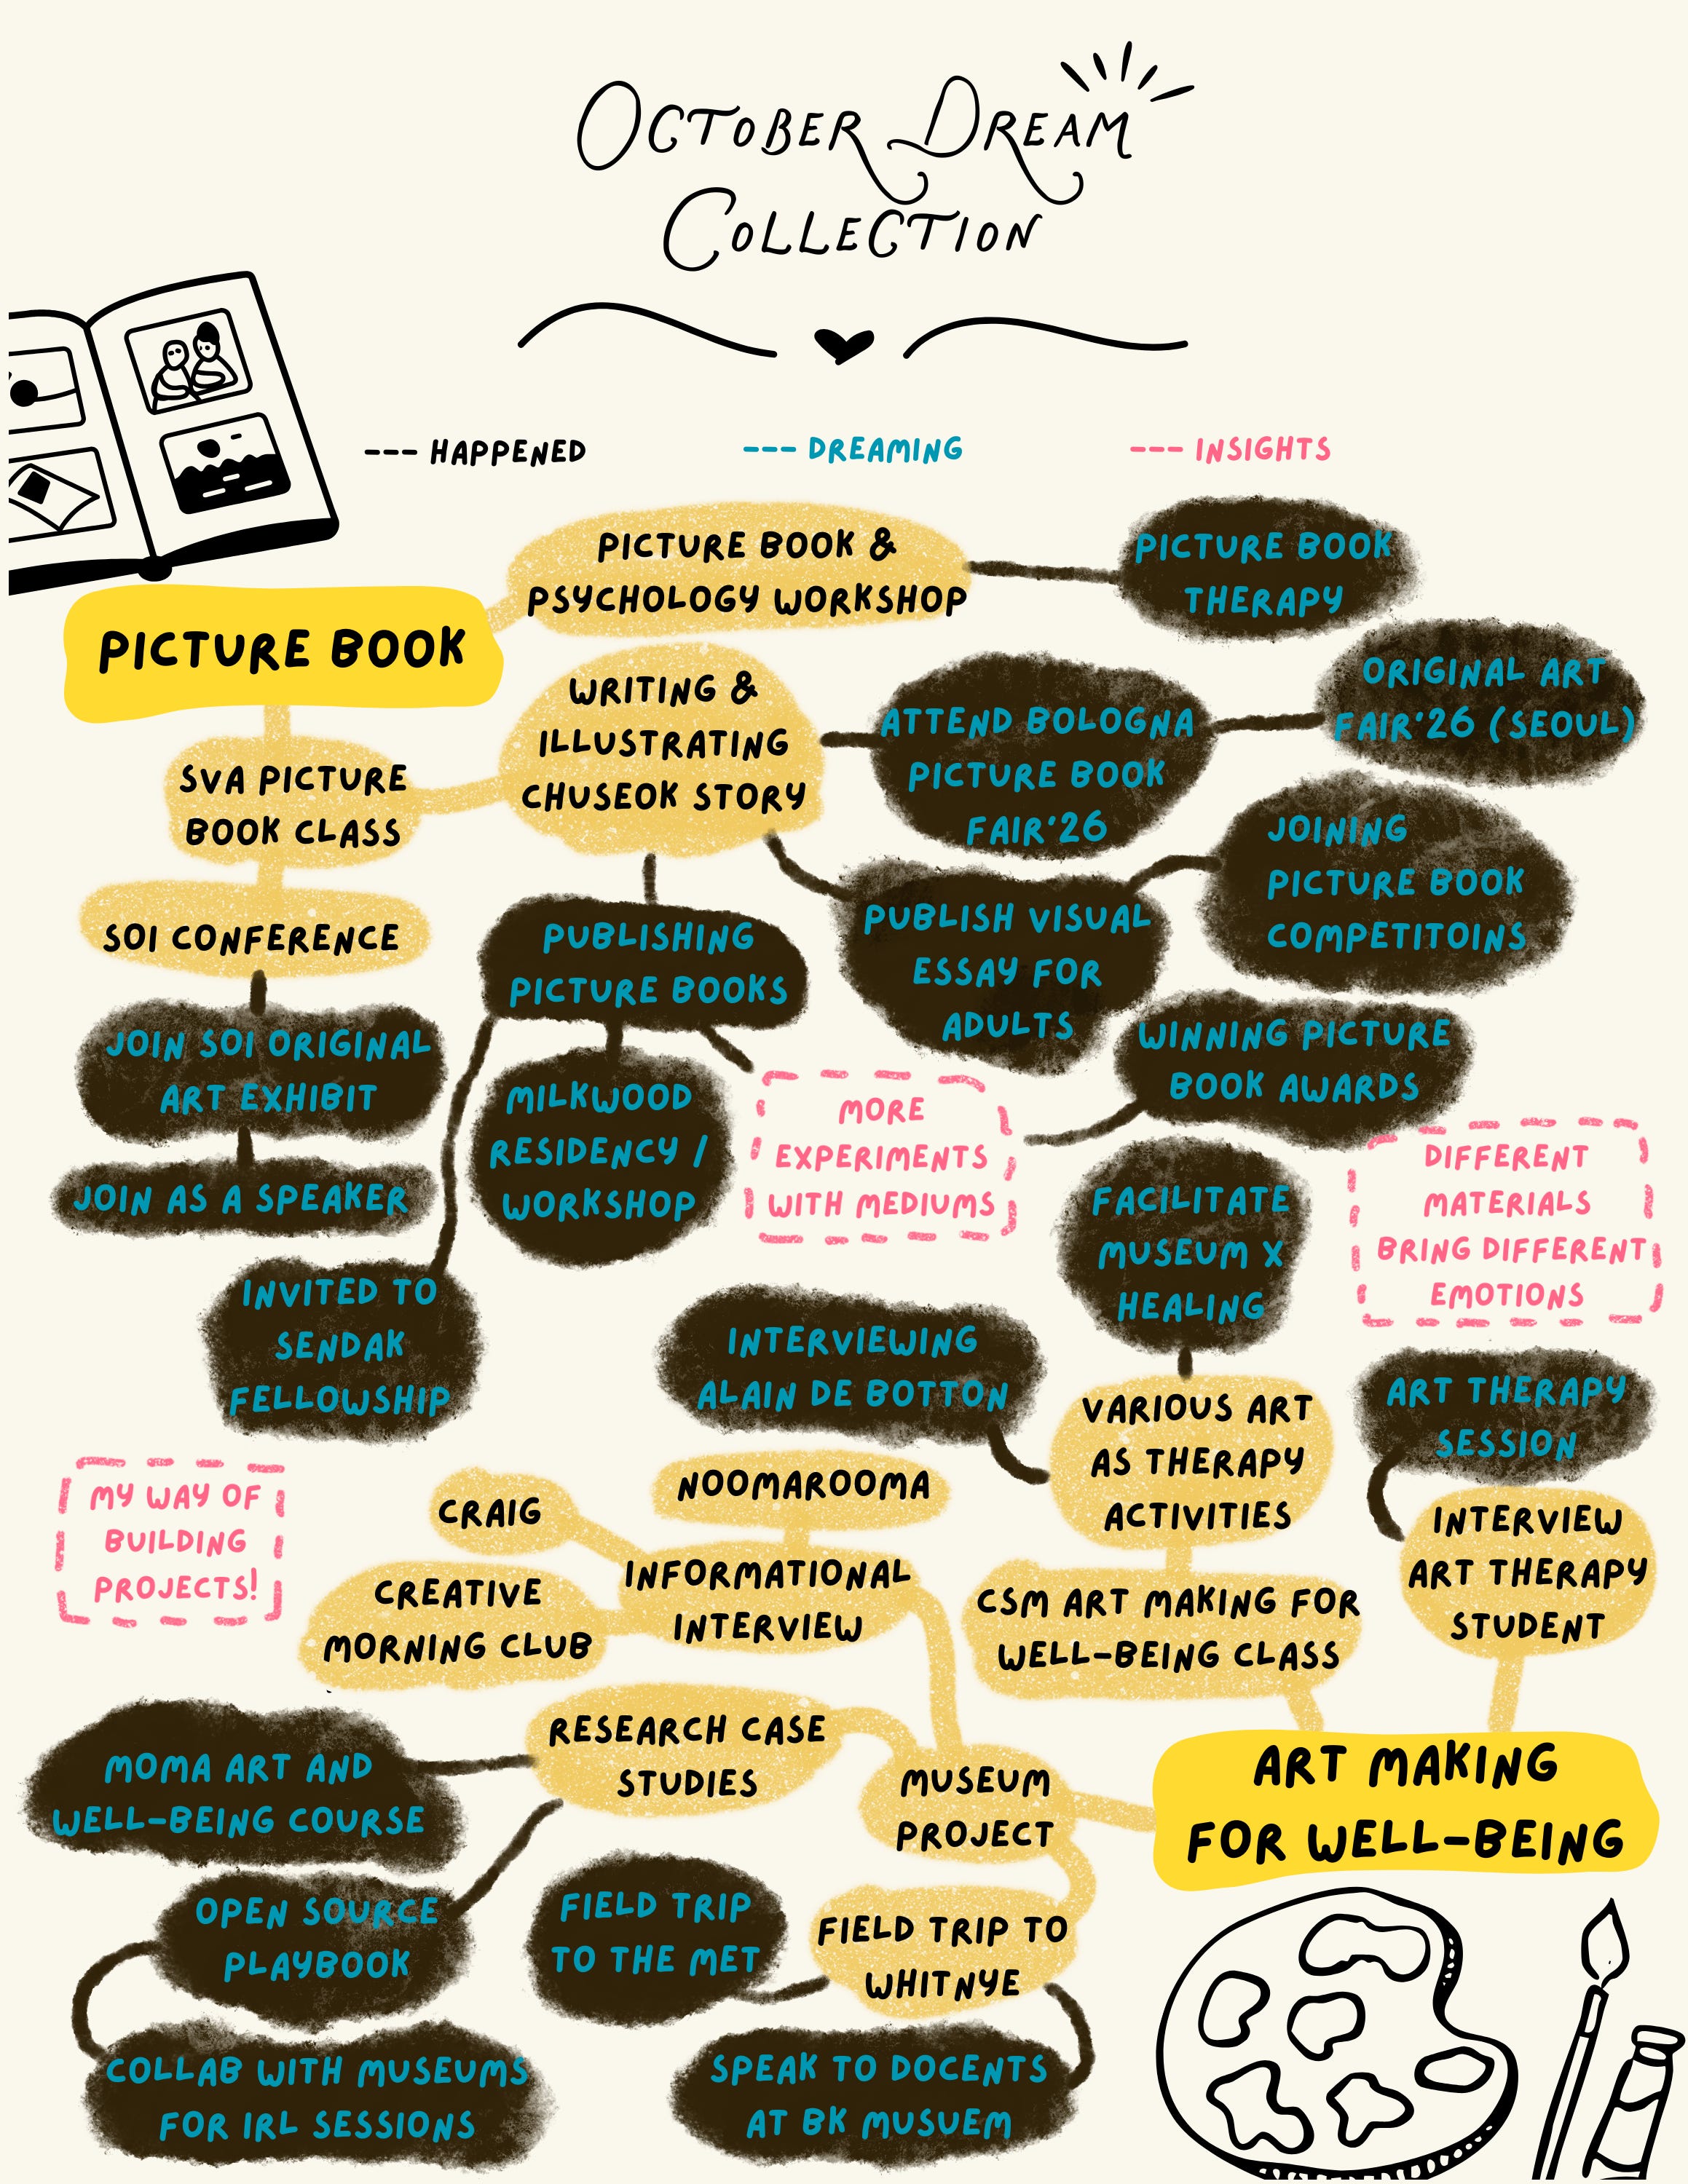 OCTOBER DREAM
COLLECTION
--- HAPPENED
--- DREAMING
--- INSIGHTS
PICTURE BOOK
PICTURE BOOK &
PSYCHOLOGY WORKSHOP
PICTURE BOOK
THERAPY
WRITING &
ILLUSTRATING
CHUSEOK STORY
ATTEND BOLOGNA
PICTURE BOOK
FAIR'26
ORIGINAL ART
FAIR'26 (SEOUL)
SVA PICTURE
BOOK CLASS
SOI CONFERENCE
JOIN SOI ORIGINAL
ART EXHIBIT
JOIN AS A SPEAKER
PUBLISHING
PICTURE BOOKS
PUBLISH VISUAL
ESSAY FOR
ADULTS
JOINING
PICTURE BOOK
COMPETITOINS
WINNING PICTURE
BOOK AWARDS
MILKWOOD
RESIDENCY /
WORKSHOP
MORE
EXPERIMENTS
WITH MEDIUMS
INVITED TO
SENDAK
FELLOWSHIP
FACILITATE
MUSEUM X
HEALING
DIFFERENT
MATERIALS
BRING DIFFERENT
EMOTIONS
INTERVIEWING
ALAIN DE BOTTON
VARIOUS ART
AS THERAPY
ACTIVITIES
ART THERAPY
SESSION
MY WAY OF
BUILDING
PROJECTS!
CRAIG
NOOMAROOMA
CREATIVE
MORNING CLUB
INFORMATIONAL
INTERVIEW
CSM ART MAKING FOR
WELL-BEING CLASS
INTERVIEW
ART THERAPY
STUDENT
MOMA ART AND
WELL-BEING COURSE
RESEARCH CASE
STUDIES
MUSEUM
PROJECT
ART MAKING
FOR WELL-BEING
OPEN SOURCE
PLAYBOOK
FIELD TRIP
TO THE MET
FIELD TRIP TO
WHITNYE
COLLAB WITH MUSEUMS
FOR IRL SESSIONS
SPEAK TO DOCENTS
AT BK MUSUEM